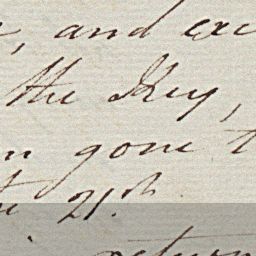 , and exc
the Key,
gone t
21st.
return